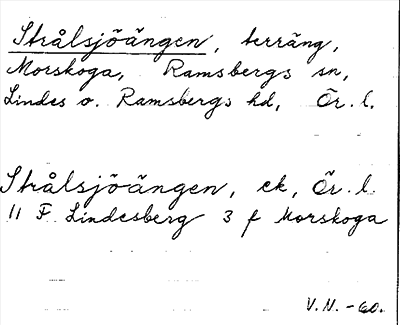 Strålsjöängen, terräng,
Morskoga, Ramsbergs sn,
Lindes o. Ramsbergs hd, Ör. l.
Strålsjöängen, ek, Ör. l.
11 F Lindesberg 3 f Morskoga
V.N. -60.